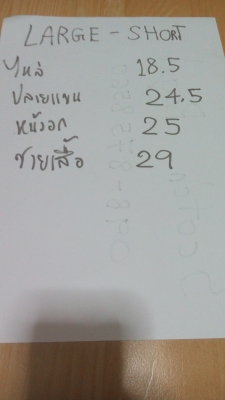 LARGE - SHORT
ไหล่ 18.5
ปลายแขน 24.5
หน้าอก 25
ชายเสื้อ 29